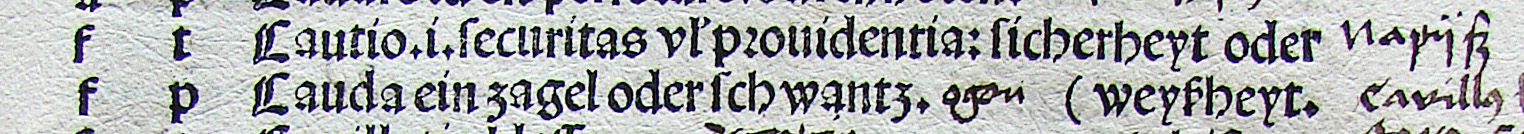 f t Cautio.i.securitas vľ prouidentia: sicherheyt oder Napijſz
f p Cauda ein zagel oder schwantz. ogon ( weyßheyt. Cavillꝯ